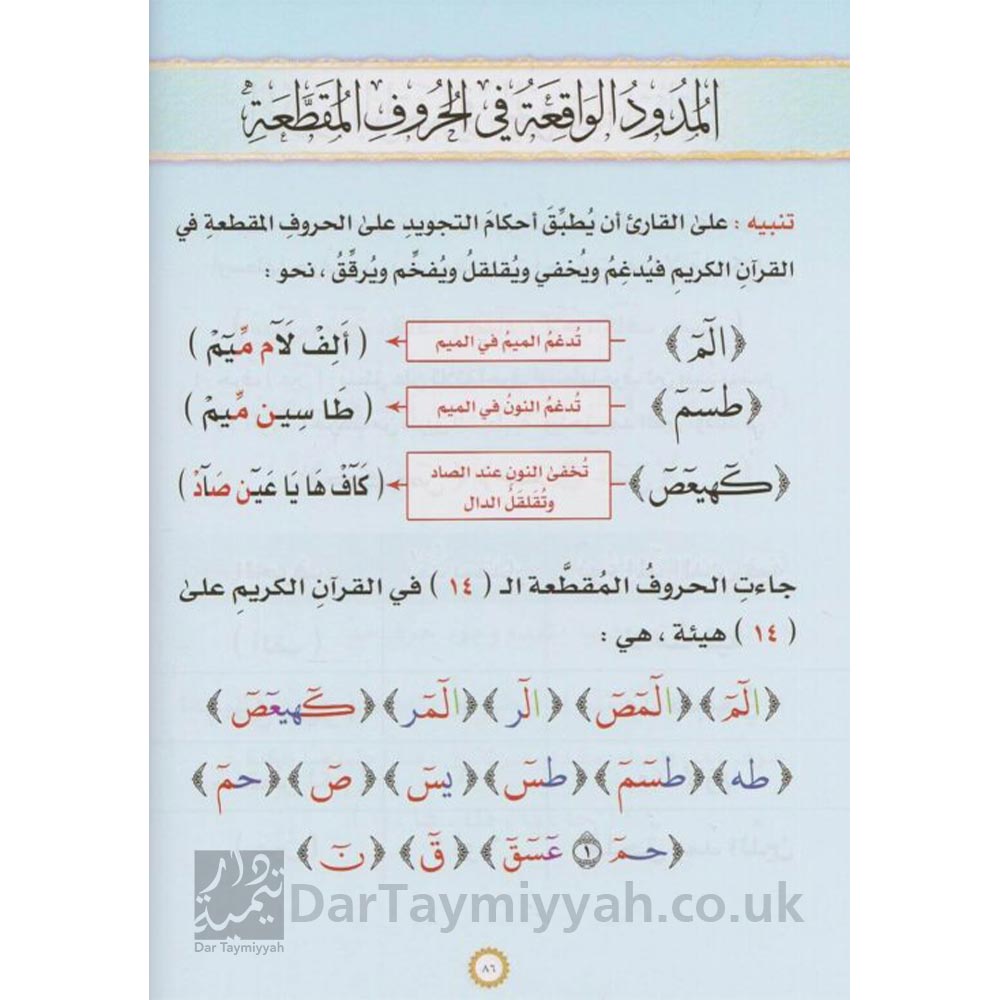 المُدُودُ الوَاقِعَةُ فِي الحُرُوفِ المُقَطَّعَةِ
تنبيه : علىٰ القارئ أن يُطبِّقَ أحكامَ التجويدِ علىٰ الحروفِ المقطعةِ في
القرآنِ الكريمِ فيُدغِمُ ويُخفي ويُقلقلُ ويُفخِّم ويُرقِّقُ ، نحو :
﴿الٓمٓ﴾ تُدغمُ الميمُ في الميم ( أَلِفْ لَآم مِّيٓمْ )
﴿طسٓمٓ﴾ تُدغمُ النونُ في الميم ( طَا سِيـن مِّيمْ )
﴿كٓهيعٓصٓ﴾ تُخفىٰ النونِ عند الصاد ( كَآفْ هَا يَا عَيٓن صَآدْ )
وتُقَلقَلُ الدال
جاءتِ الحروفُ المُقطَّعة الـ ( ١٤ ) في القرآنِ الكريمِ علىٰ
( ١٤ ) هيئة ، هي :
﴿الٓمٓ﴾ ﴿الٓمٓصٓ﴾ ﴿الٓر﴾ ﴿الٓمٓر﴾ ﴿كٓهيعٓصٓ﴾
﴿طه﴾ ﴿طسٓمٓ﴾ ﴿طسٓ﴾ ﴿يسٓ﴾ ﴿صٓ﴾ ﴿حمٓ﴾
﴿حمٓ ١ عٓسٓقٓ﴾ ﴿قٓ﴾ ﴿نٓ﴾
دار تيمية
Dar Taymiyyah
DarTaymiyyah.co.uk
٨٦